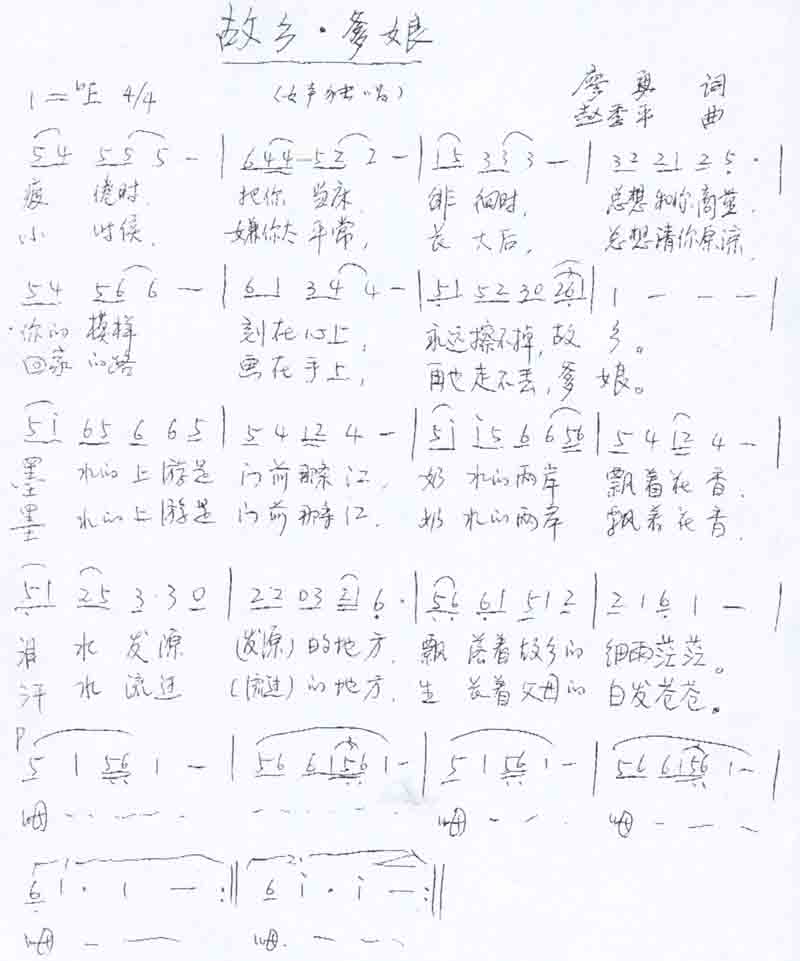 故乡·爹娘
1=♭E 4/4 (女声独唱) 廖勇 词
赵季平 曲
5 4 5 5 5 - | 6 4 4 5 2 2 - | 1 5 3 3 3 - | 3 2 2 1 2 5 · |
疲倦时, 把你当床, 徘徊时, 总想和你商量,
小时候, 嫌你太平常, 长大后, 总想请你原谅,
5 4 5 6 6 - | 6 1 3 4 4 - | 5 1 5 2 3 0 2 6 1 | 1 - - - |
你的模样 刻在心上, 永远擦不掉,故乡。
回家的路 画在手上, 再也走不丢,爹娘。
5 i 6 5 6 6 5 | 5 4 1 2 4 - | 5 i i 5 6 6 5 6 | 5 4 1 2 4 - |
墨水的上游是 门前那条江, 奶水的两岸 飘着花香,
墨水的上游是 门前那条江, 奶水的两岸 飘着花香,
5 1 2 5 3 · 3 0 | 2 2 0 3 2 1 6 · | 5 6 6 1 5 1 2 | 2 1 6 1 - |
泪水发源 (发源)的地方, 飘荡着故乡的 细雨茫茫。
汗水流进 (流进)的地方, 生长着父母的 白发苍苍。
P
5 1 5 6 1 - | 5 6 6 1 5 6 1 - | 5 1 5 6 1 - | 5 6 6 1 5 6 1 - |
呣 - - - - - - - - - 呣 - - - 呣 - - -
6 1 · 1 - :‖ 6 i · i - :‖
呣 - - 呣 - - -